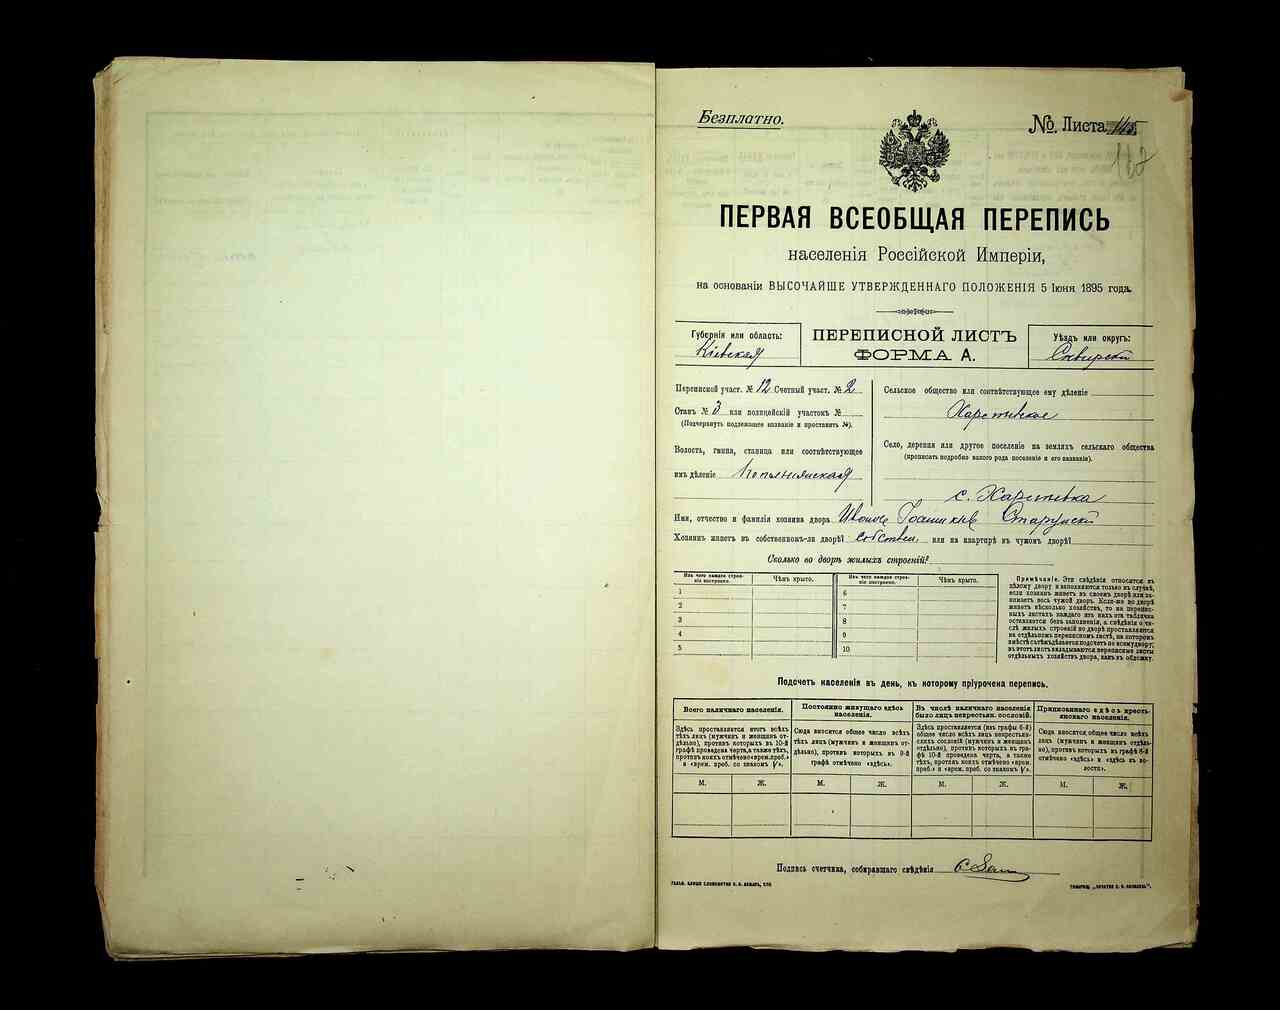 Безплатно.
№. Листа 115
117
ПЕРВАЯ ВСЕОБЩАЯ ПЕРЕПИСЬ
населенія Россійской Имперіи,
на основаніи ВЫСОЧАЙШЕ УТВЕРЖДЕННАГО ПОЛОЖЕНІЯ 5 Іюня 1895 года.
Губернія или область:
Кіевская
ПЕРЕПИСНОЙ ЛИСТЪ
ФОРМА А.
Уѣздъ или округъ:
Сквирскій
Переписной участ. № 12 Счетный участ. № 2
Станъ № 3 или полицейскій участокъ №
(Подчеркнуть подлежащее названіе и проставить №).
Волость, гмина, станица или соотвѣтствующее
имъ дѣленіе
Сельское общество или соотвѣтствующее ему дѣленіе
Село, деревня или другое поселеніе на земляхъ сельскаго общества
(прописать подробно какого рода поселеніе и его названіе).
с.
Имя, отчество и фамилія хозяина двора
Хозяинъ живетъ въ собственномъ-ли дворѣ? собствен. или на квартирѣ въ чужомъ дворѣ?
Сколько во дворѣ жилыхъ строеній?
Изъ чего каждое строеніе построено.
Чѣмъ крыто.
Изъ чего каждое строеніе построено.
Чѣмъ крыто.
1 6
2 7
3 8
4 9
5 10
Примѣчаніе. Эти свѣдѣнія относятся къ
цѣлому двору и заполняются только въ случаѣ,
если хозяинъ живетъ въ своемъ дворѣ или занимаетъ
весь чужой дворъ. Если-же во дворѣ
живетъ нѣсколько хозяйствъ, то на переписныхъ
листахъ каждаго изъ нихъ эта табличка
оставляется безъ заполненія, а свѣдѣнія о числѣ
жилыхъ строеній во дворѣ проставляются
на отдѣльномъ переписномъ листѣ, на которомъ
вмѣстѣ съ тѣмъ дѣлается подсчетъ по всему двору;
въ этотъ листъ вкладываются переписные листы
отдѣльныхъ хозяйствъ двора, какъ въ обложку.
Подсчетъ населенія въ день, къ которому пріурочена перепись.
Всего наличнаго населенія.
Здѣсь проставляется итогъ всѣхъ
тѣхъ лицъ (мужчинъ и женщинъ отдѣльно),
противъ которыхъ въ 10-й
графѣ проведена черта, а также тѣхъ,
противъ коихъ отмѣчено «врем. преб.»
и «врем. преб. со знакомъ V».
Постоянно живущаго здѣсь
населенія.
Сюда вносится общее число всѣхъ
тѣхъ лицъ (мужчинъ и женщинъ отдѣльно),
противъ которыхъ въ 9-й
графѣ отмѣчено «здѣсь».
Въ числѣ наличнаго населенія
было лицъ некрестьян. сословій.
Здѣсь проставляется (изъ графы 6-й)
общее число всѣхъ лицъ некрестьянскихъ
сословій (мужчинъ и женщинъ
отдѣльно), противъ которыхъ въ графѣ
10-й проведена черта, а также
тѣхъ, противъ коихъ отмѣчено «врем.
преб.» и «врем. преб. со знакомъ V».
Приписаннаго здѣсь крестьянскаго
населенія.
Сюда вносится общее число всѣхъ
лицъ (мужчинъ и женщинъ отдѣльно),
противъ которыхъ въ графѣ 8-й
отмѣчено «здѣсь» и «здѣсь въ волости».
М. Ж. М. Ж. М. Ж. М. Ж.
Подпись счетчика, собиравшаго свѣдѣнія